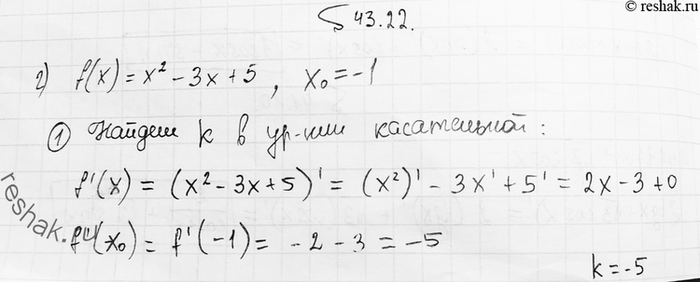 © reshak.ru
§ 43.22.
г) f(x) = x² - 3x + 5 , x₀ = -1
① Найдем k в ур-нии касательной :
f'(x) = (x² - 3x + 5)' = (x²)' - 3x' + 5' = 2x - 3 + 0
reshak.
f'(x₀) = f'(-1) = -2 - 3 = -5
k = -5